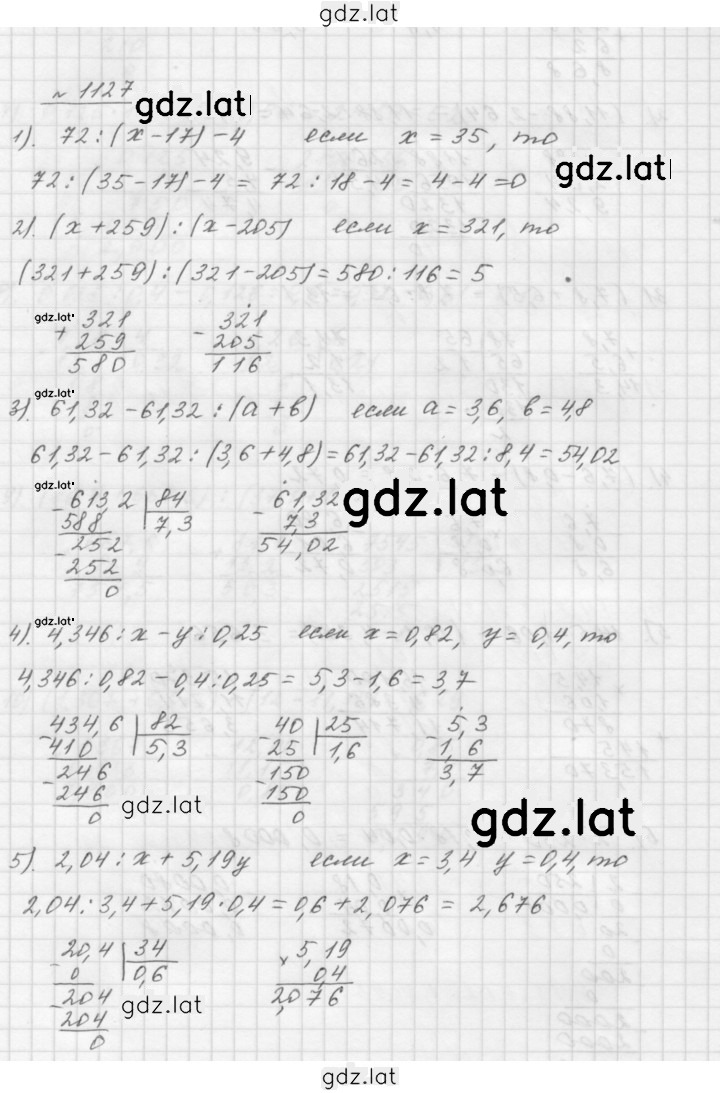 gdz.lat
№ 1127
gdz.lat
1). 72 : (x - 17) - 4 если x = 35, то
gdz.lat
72 : (35 - 17) - 4 = 72 : 18 - 4 = 4 - 4 = 0
2). (x + 259) : (x - 205) если x = 321, то
(321 + 259) : (321 - 205) = 580 : 116 = 5
gdz.lat
321 321
+ 259 - 205
580 116
gdz.lat
3). 61,32 - 61,32 : (a + b) если a = 3,6, b = 4,8
61,32 - 61,32 : (3,6 + 4,8) = 61,32 - 61,32 : 8,4 = 54,02
gdz.lat
gdz.lat
- 613,2 | 84 - 61,32
588 7,3 7,3
- 252 54,02
252
0
gdz.lat
4). 4,346 : x - y : 0,25 если x = 0,82, y = 0,4, то
4,346 : 0,82 - 0,4 : 0,25 = 5,3 - 1,6 = 3,7
- 434,6 | 82 - 40 | 25 - 5,3
410 5,3 25 1,6 1,6
- 246 - 150 3,7
246 150
0 0
gdz.lat
gdz.lat
5). 2,04 : x + 5,19y если x = 3,4 y = 0,4, то
2,04 : 3,4 + 5,19 · 0,4 = 0,6 + 2,076 = 2,676
- 20,4 | 34 × 5,19
0 0,6 0,4
- 204 2,076
204
0
gdz.lat
gdz.lat